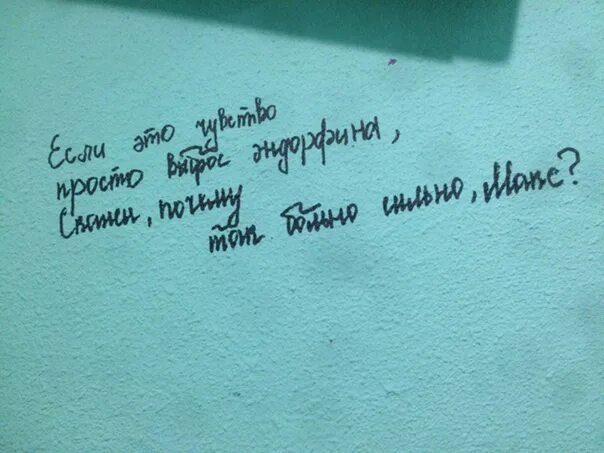 Если это чувство
просто выброс эндорфина,
Скажи, почему
так больно сильно, Макс?